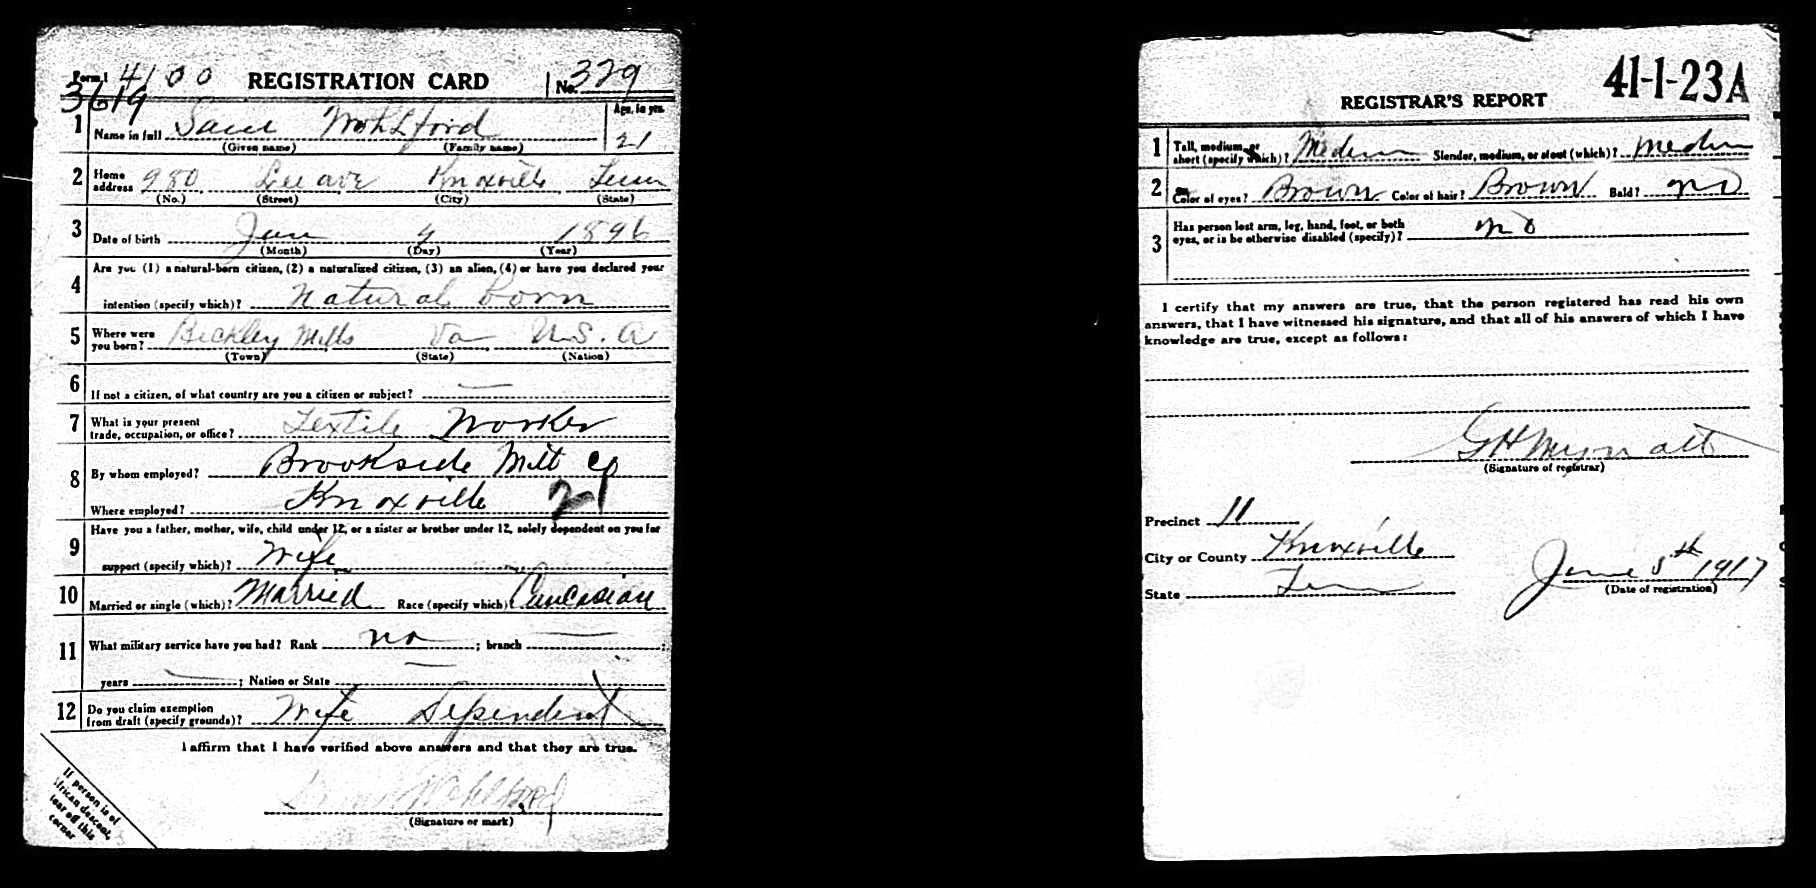 Form 1 4100 REGISTRATION CARD No. 329
3619
Age, in yrs.
1 Name in full Sam Wohlford 21
(Given name) (Family name)
2 Home address 980 Lee ave Knoxville Tenn
(No.) (Street) (City) (State)
3 Date of birth 4 1896
(Month) (Day) (Year)
4 Are you (1) a natural-born citizen, (2) a naturalized citizen, (3) an alien, (4) or have you declared your
intention (specify which)? Natural born
5 Where were you born? Bickley Mills Va U.S.A
(Town) (State) (Nation)
6 If not a citizen, of what country are you a citizen or subject? —
7 What is your present trade, occupation, or office? Textile Worker
8 By whom employed? Brookside Mill Co
Where employed? Knoxville
9 Have you a father, mother, wife, child under 12, or a sister or brother under 12, solely dependent on you for
support (specify which)? Wife
10 Married or single (which)? Married Race (specify which) Caucasian
11 What military service have you had? Rank no ; branch — ;
years — ; Nation or State —
12 Do you claim exemption from draft (specify grounds)? Wife Dependent
I affirm that I have verified above answers and that they are true.
Wohlford
(Signature or mark)
If person is of
African descent,
tear off this
corner
41-1-23A
REGISTRAR'S REPORT
1 Tall, medium, or short (specify which)? Medium Slender, medium, or stout (which)? Medium
2 Color of eyes? Brown Color of hair? Brown Bald? no
3 Has person lost arm, leg, hand, foot, or both
eyes, or is he otherwise disabled (specify)? no
I certify that my answers are true, that the person registered has read his own
answers, that I have witnessed his signature, and that all of his answers of which I have
knowledge are true, except as follows:
G H Mynatt
(Signature of registrar)
Precinct 11
City or County Knoxville
State Tenn
June 5th 1917
(Date of registration)